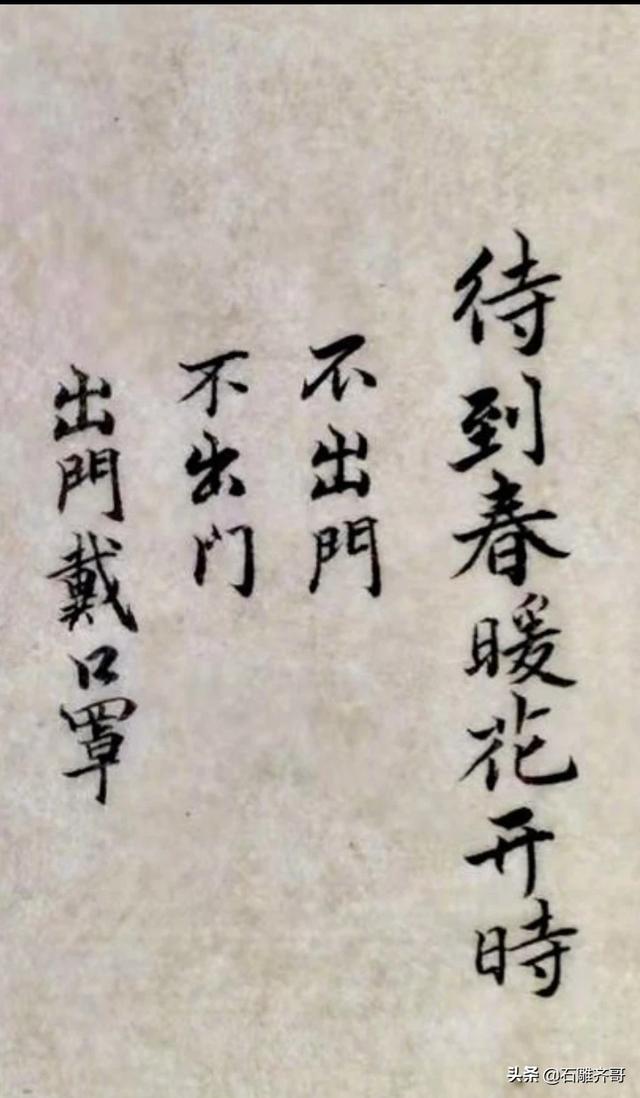 待到春暖花开時
不出門
不出门
出門戴口罩
头条 @石雕齐哥